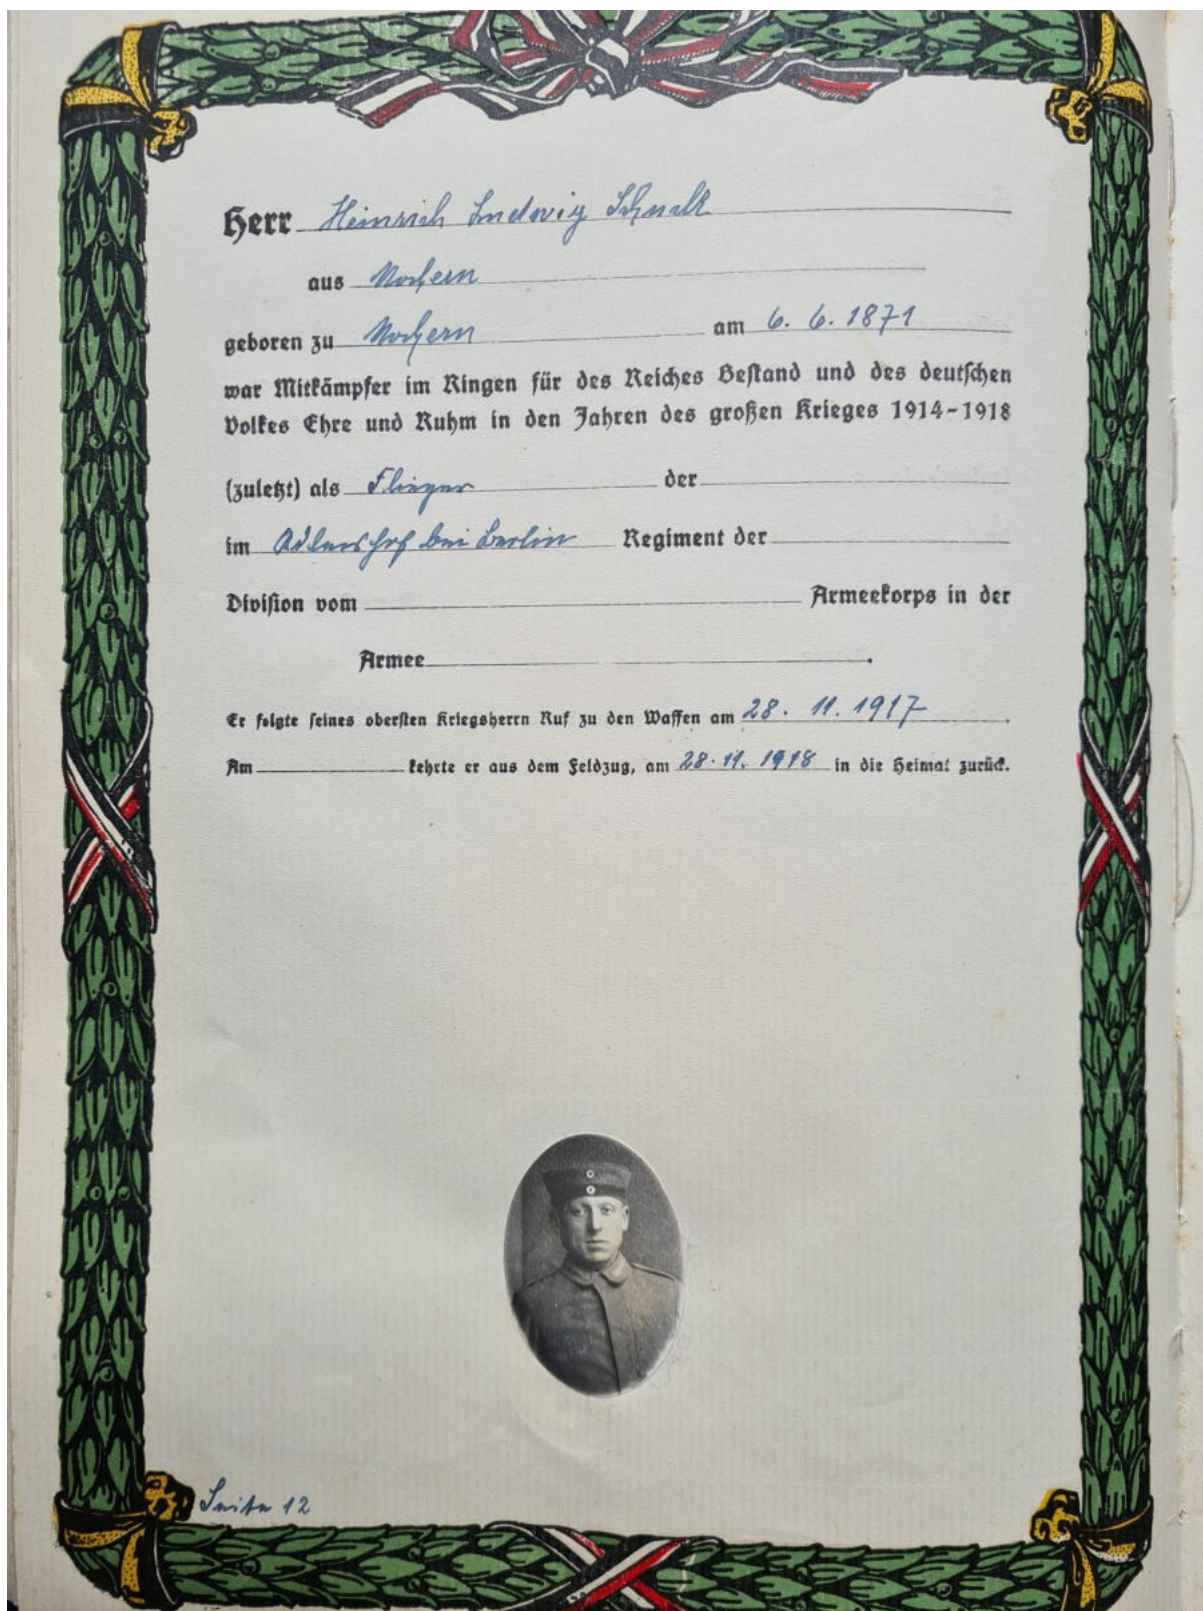 Herr Heinrich Ludwig
aus Nochern
geboren zu Nochern am 6. 6. 1871
war Mitkämpfer im Ringen für des Reiches Bestand und des deutschen
Volkes Ehre und Ruhm in den Jahren des großen Krieges 1914-1918
(zuletzt) als Flieger der
im Adlershof bei Berlin Regiment der
Division vom Armeekorps in der
Armee.
Er folgte seines obersten Kriegsherrn Ruf zu den Waffen am 28. 11. 1917.
Am kehrte er aus dem Feldzug, am 28. 11. 1918 in die Heimat zurück.
Seite 12